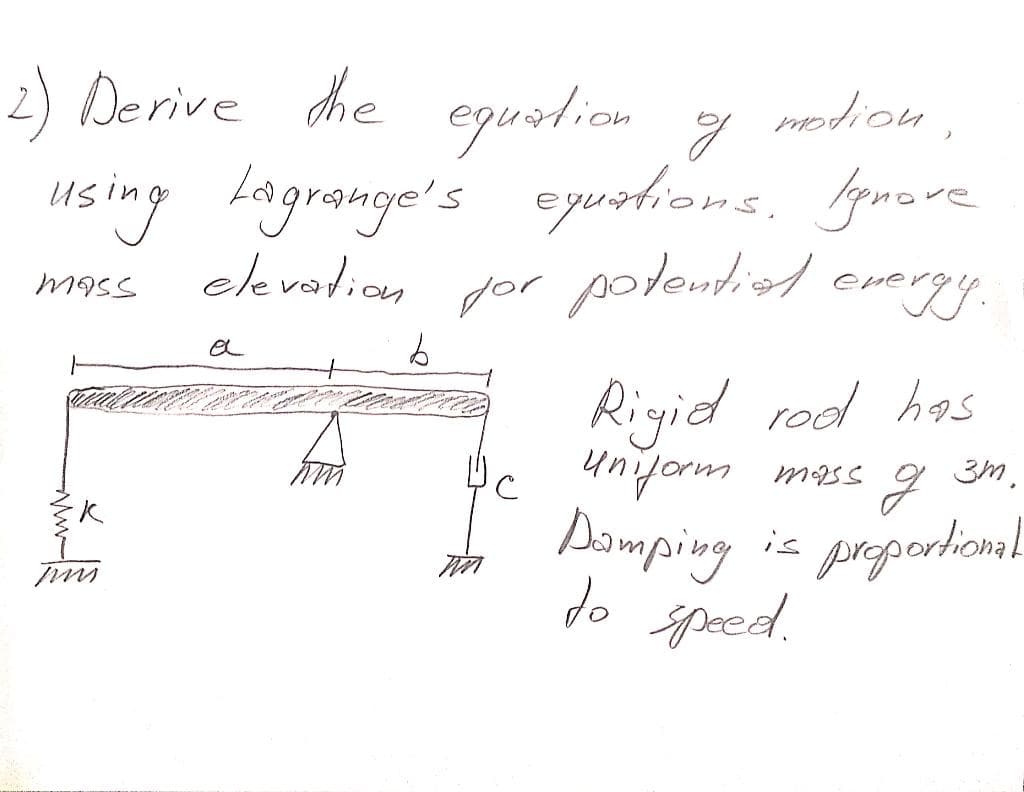 2) Derive the equation of motion,
using Lagrange's equations. Ignore
mass elevation for potential energy.
a b
Rigid rod has
uniform mass of 3m.
C
K
Damping is proportional
to speed.